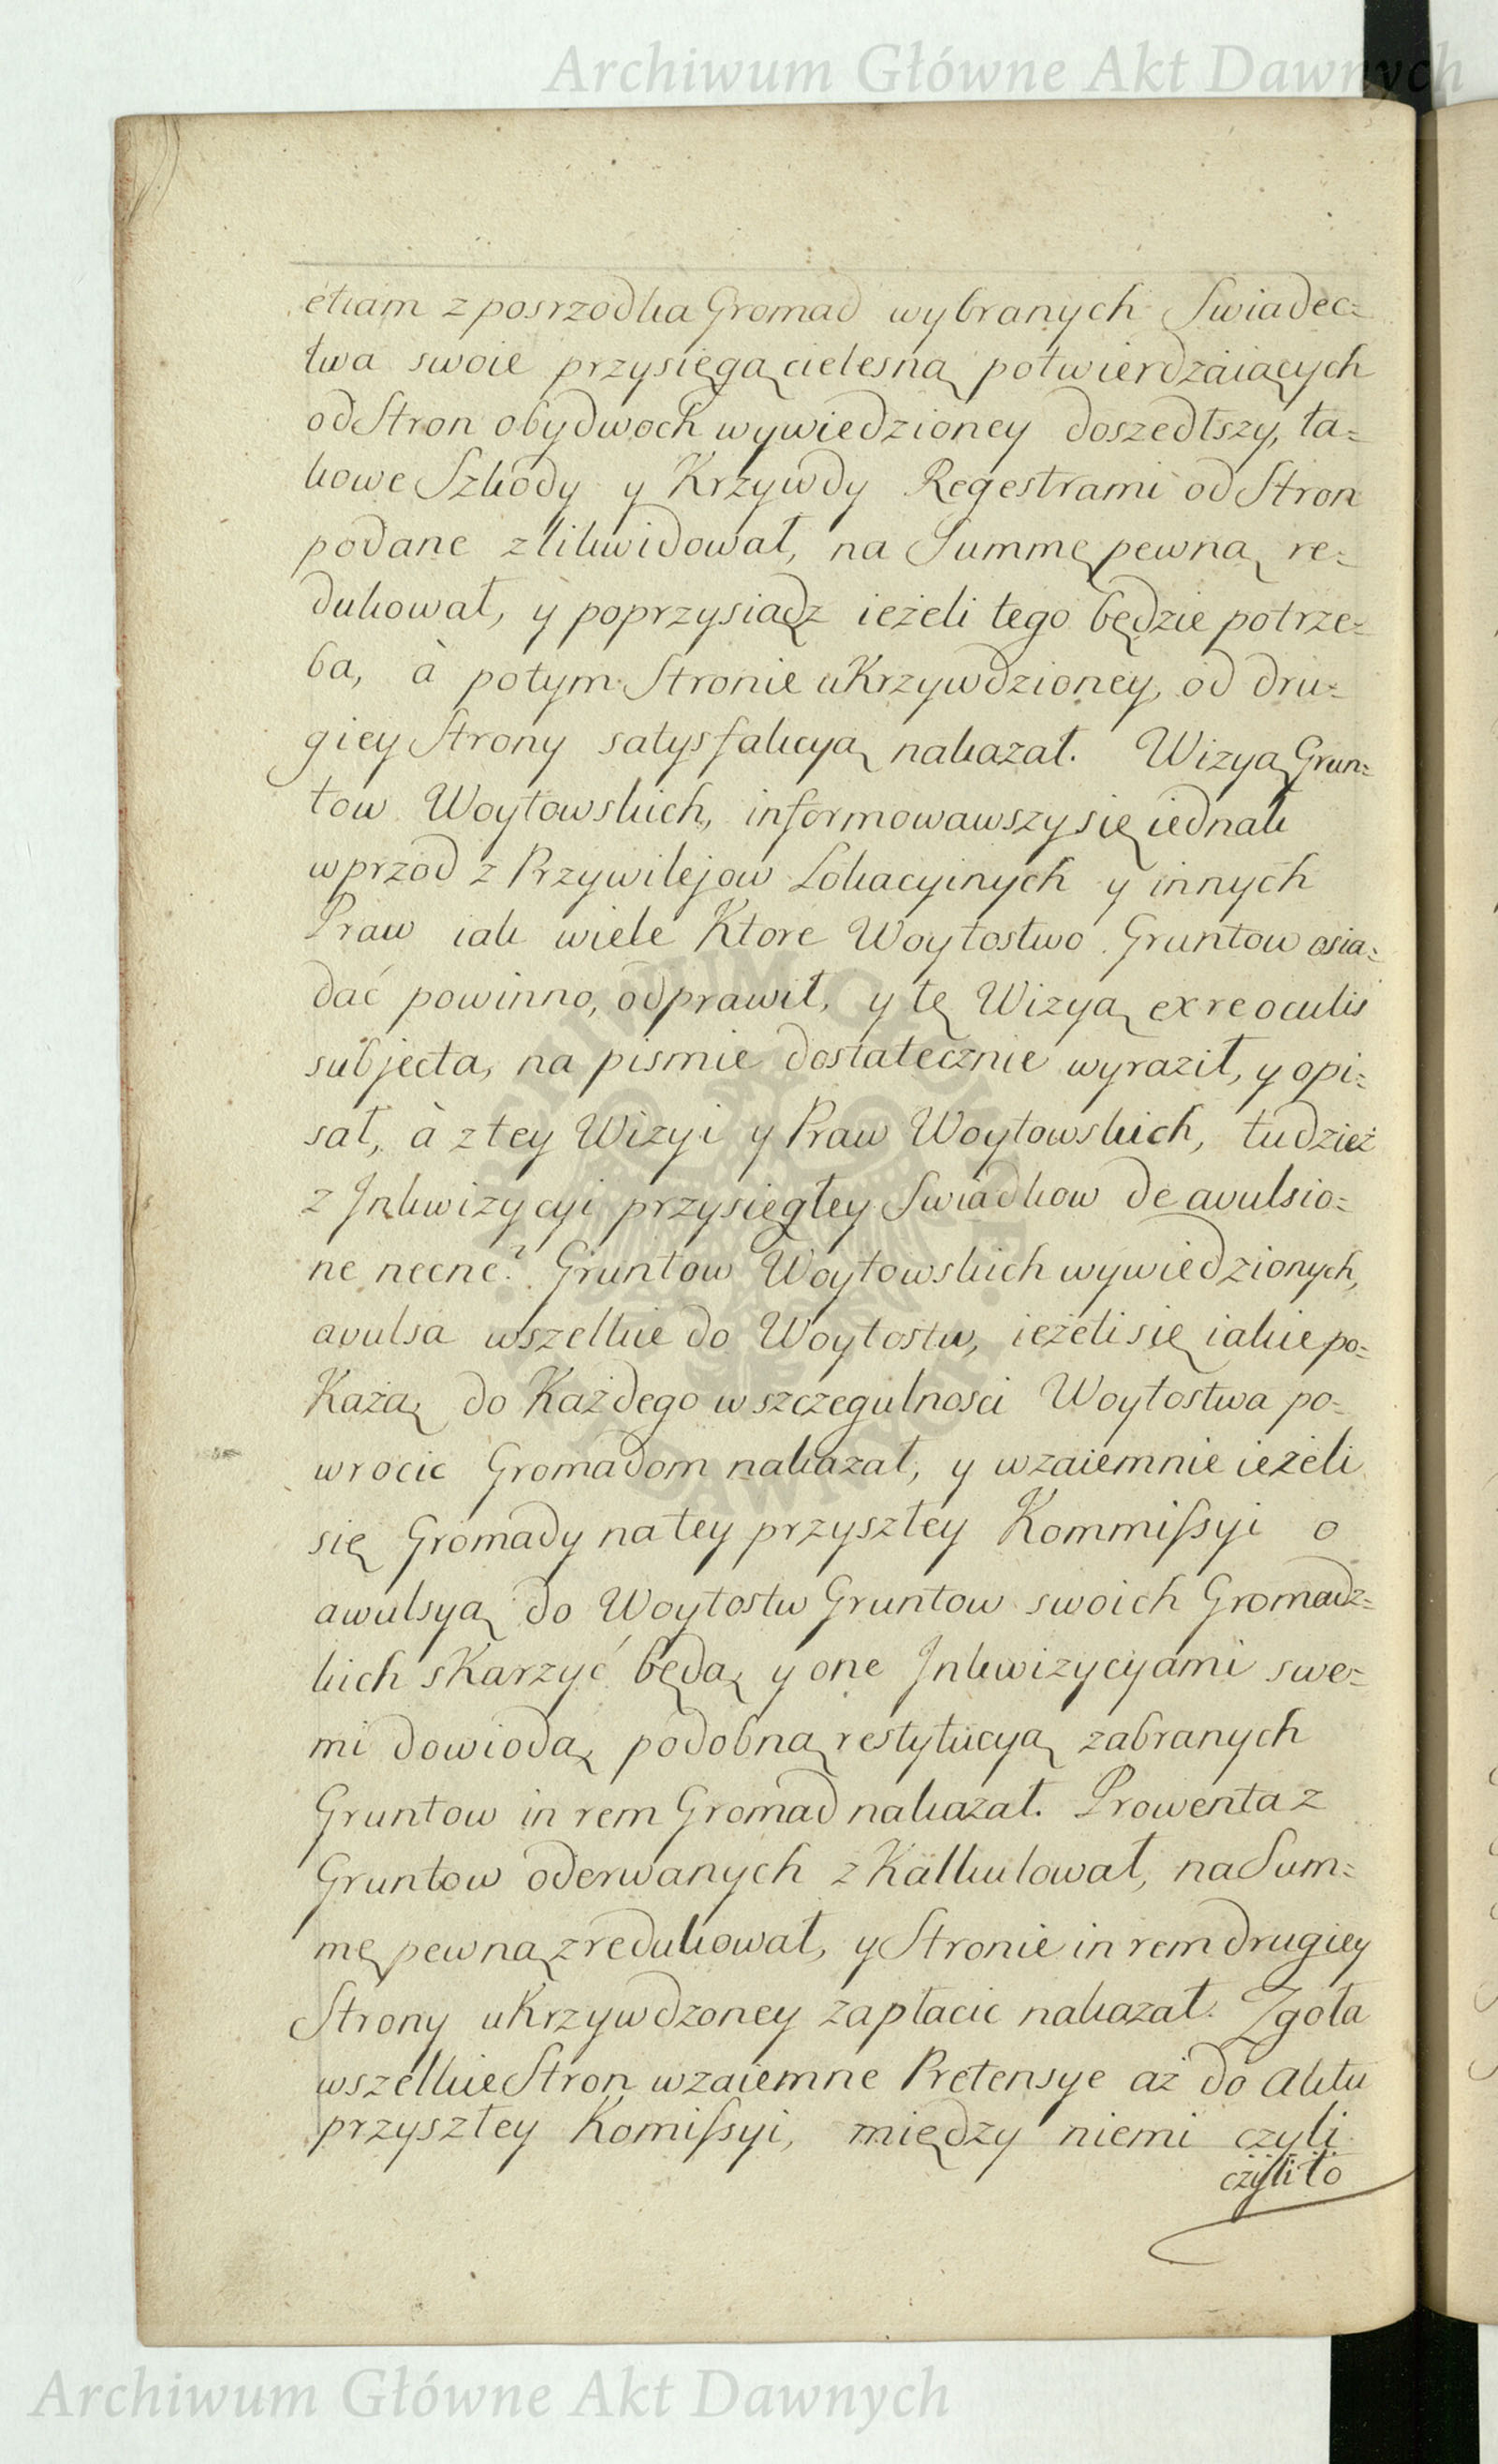 Archiwum Główne Akt Dawnych
etiam z posrzodka Gromad wybranych Swiadec=
twa swoie przysięgą cielesną potwierdzaiących
od Stron obydwoch wywiedzioney doszedłszy, ta=
kowe Szkody y Krzywdy Regestrami od Stron
podane zlikwidował, na Summę pewną re=
dukował, y poprzysiądz ieżeli tego będzie potrze=
ba, à potym Stronie uKrzywdzioney, od dru=
giey Strony satysfakcyą nakazał. Wizyą Grun=
tow Woytowskich, informowawszy się iednak
wprzod z Przywilejow Lokacyinych y innych
Praw iak wiele Ktore Woytostwo Gruntow osia=
dać powinno, odprawił, y tę Wizyą ex re oculis
subjecta, na pismie dostatecznie wyraził, y opi=
sał, à z tey Wizyi y Praw Woytowskich, tudzież
z Inkwizycyi przysięgłey Swiadkow de avulsio=
ne necne? Gruntow Woytowskich wywiedzionych,
avulsa wszelkie do Woytostw, ieżeli się iakie po=
Każą do Każdego w szczegulnosci Woytostwa po=
wrocic Gromadom nakazał, y wzaiemnie ieżeli
się Gromady na tey przyszłey Kommissyi o
awulsyą do Woytostw Gruntow swoich Gromadz=
kich sKarzyć będą y one Inkwizycyami swe=
mi dowiodą, podobną restytucyą zabranych
Gruntow in rem Gromad nakazał. Prowenta z
Gruntow oderwanych zKalkulował, na Sum=
mę pewną zredukował, y Stronie in rem drugiey
Strony uKrzywdzoney zapłacic nakazał. Zgoła
wszelkie Stron wzaiemne Pretensye aż do Aktu
przyszłey Komissyi, między niemi czyli
czyli to
Archiwum Główne Akt Dawnych